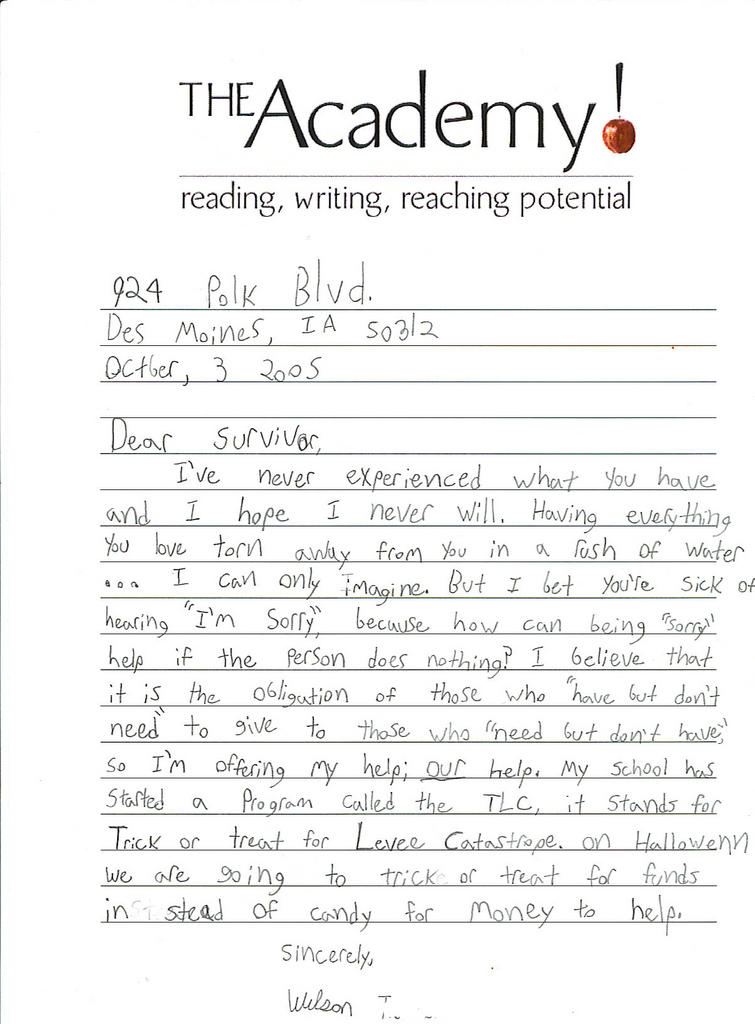 THE Academy!
reading, writing, reaching potential
924 Polk Blvd.
Des Moines, IA 50312
Octber, 3 2005
Dear Survivor,
I've never experienced what you have
and I hope I never will. Having everything
you love torn away from you in a rush of water
... I can only imagine. But I bet you're sick of
hearing "I'm Sorry", because how can being "sorry"
help if the person does nothing? I believe that
it is the obligation of those who "have but don't
need" to give to those who "need but don't have,"
so I'm offering my help; our help. My school has
started a Program called the TLC, it stands for
Trick or treat for Levee Catastrope. on Hallowenn
we are going to trick or treat for funds
in stead of candy for money to help.
Sincerely,
Wilson